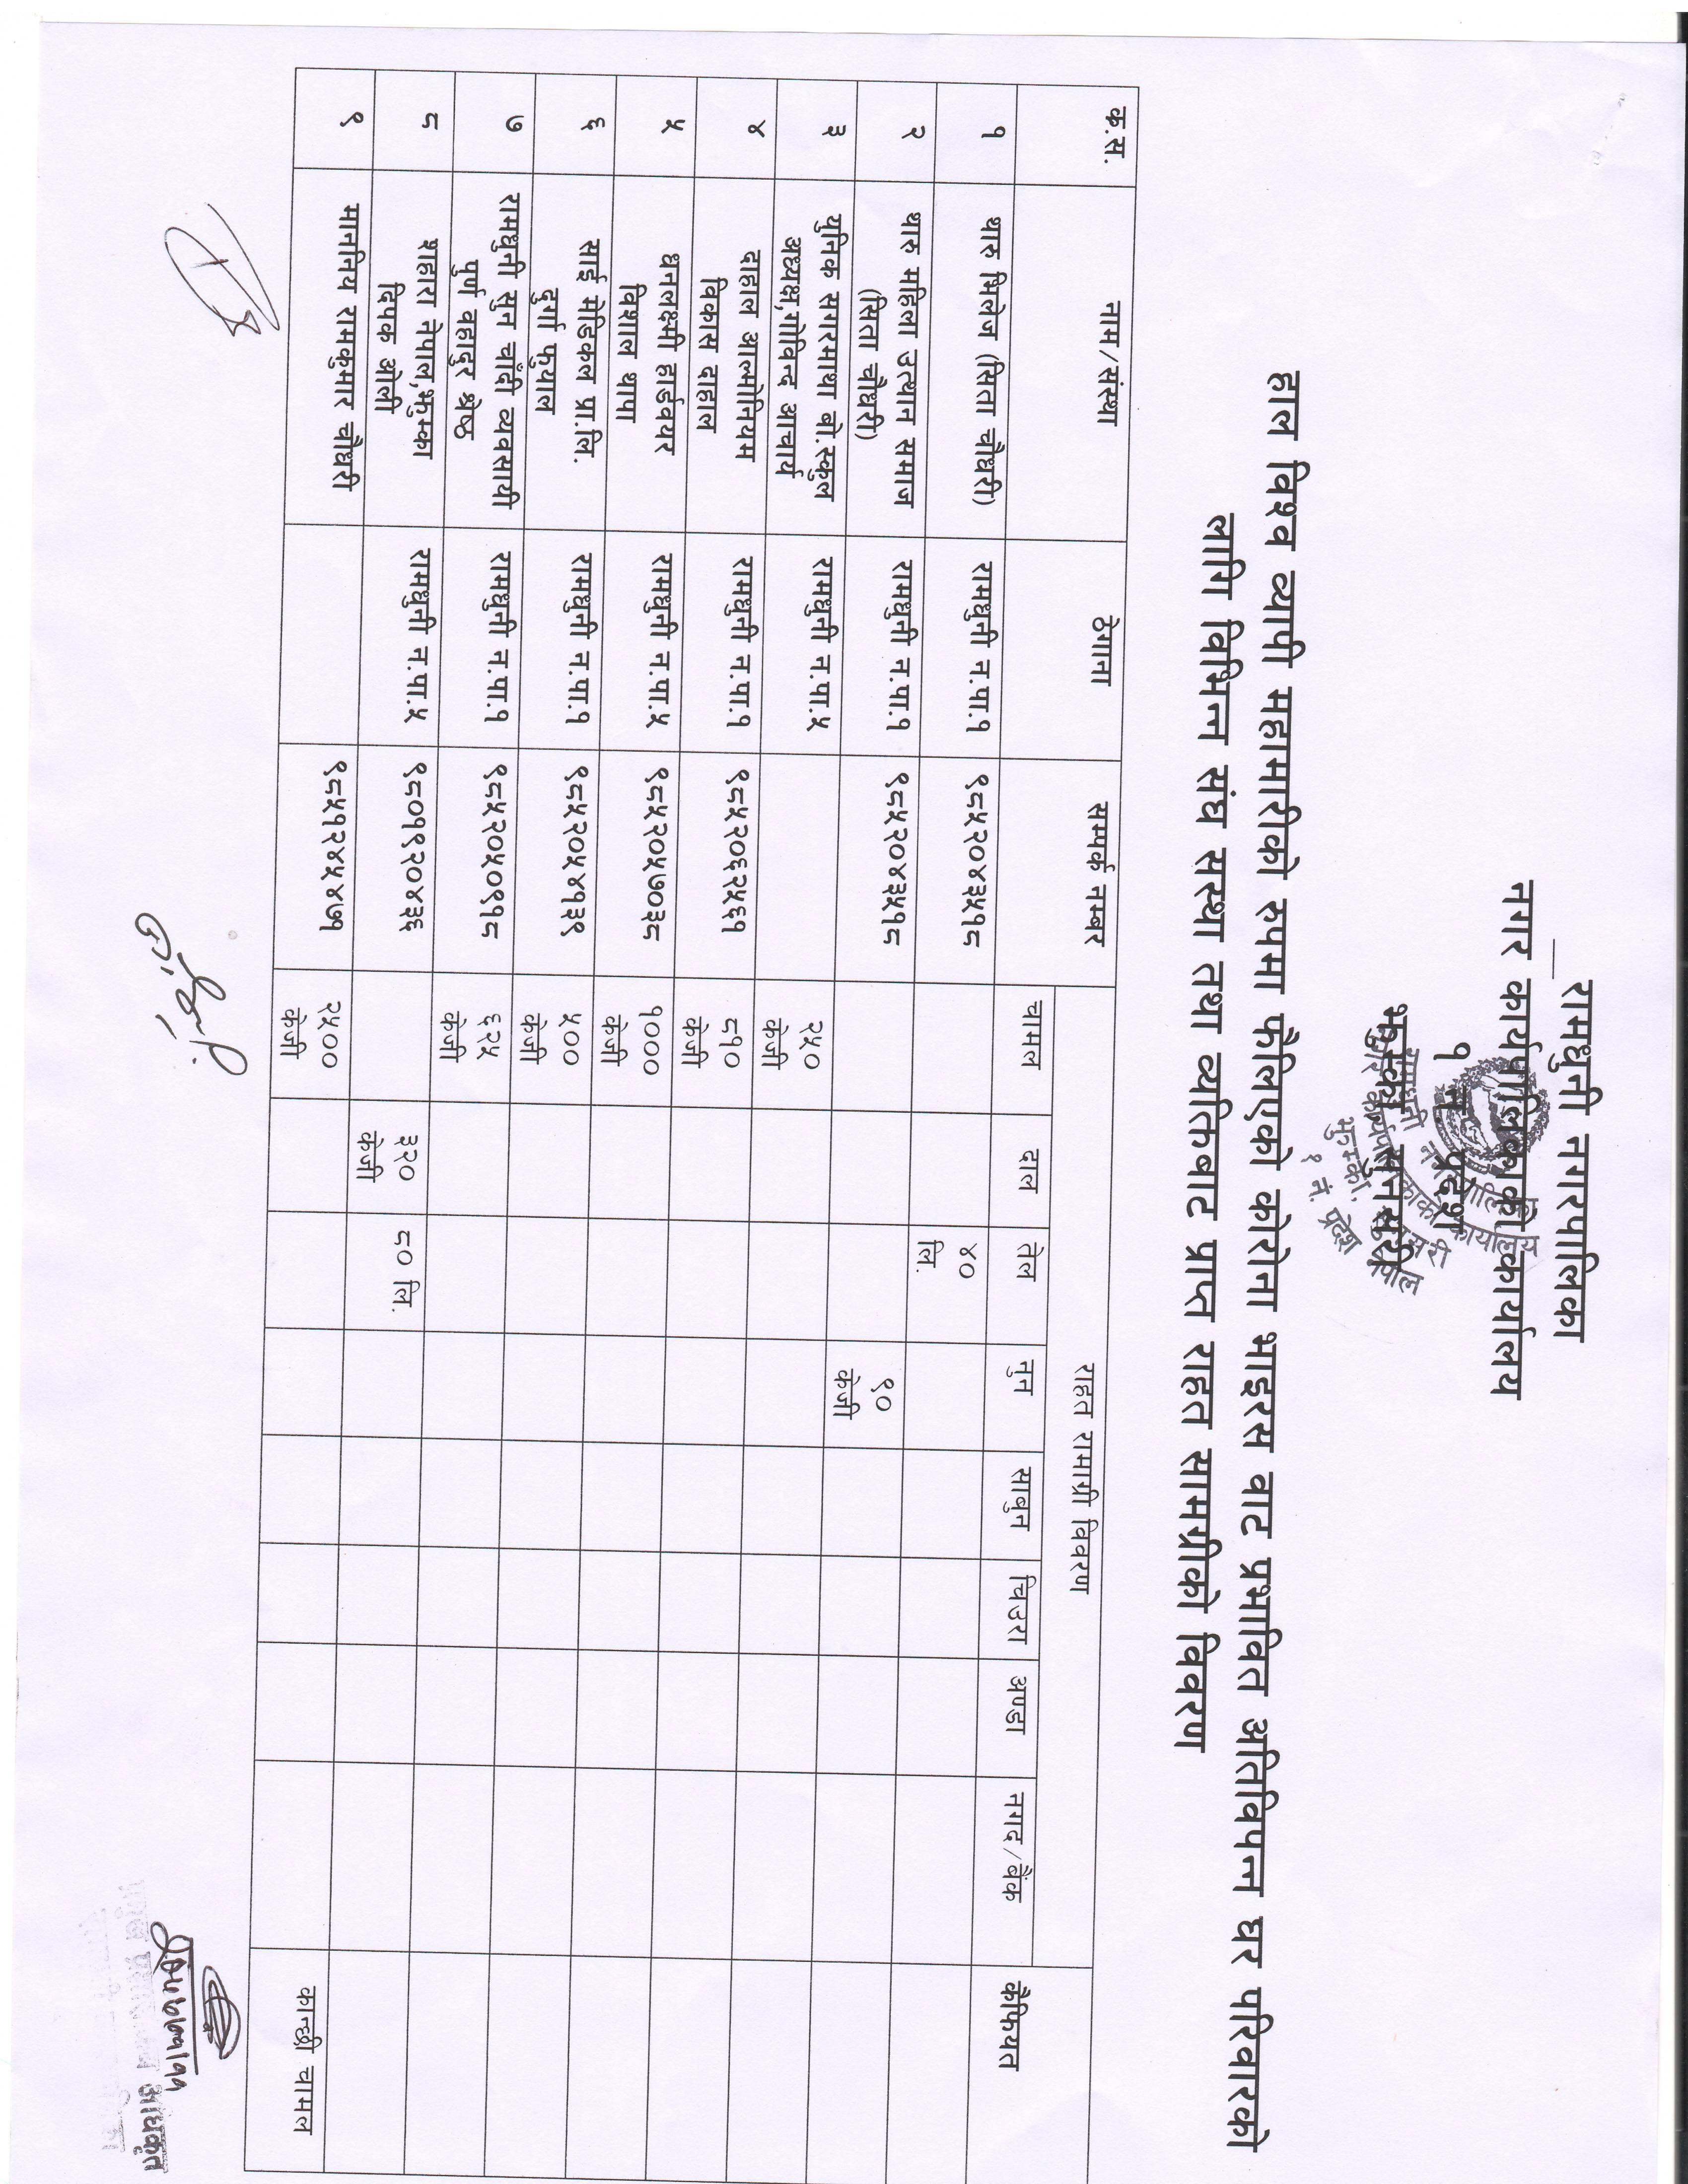 रामधुनी नगरपालिका
नगर कार्यपालिकाको कार्यालय
१ नं प्रदेश
झुम्का सुनसरी
हाल विश्व व्यापी महामारीको रुपमा फैलिएको कोरोना भाइरस वाट प्रभावित अतिविपन्न घर परिवारको
लागि विभिन्न संघ सस्था तथा व्यक्तिवाट प्राप्त राहत सामग्रीको विवरण
क.स. नाम/संस्था ठेगाना सम्पर्क नम्बर राहत सामाग्री विवरण कैफियत
चामल दाल तेल नुन सावुन चिउरा अण्डा नगाद/बैंक
१ थारु भिलेज (सिता चौधरी) रामधुनी न.पा.१ ९८५२०४३५१८ ४० लि.
२ थारु महिला उत्थान समाज
(सिता चौधरी) रामधुनी न.पा.१ ९८५२०४३५१८ ९० केजी
३ युनिक सगरमाथा बो.स्कुल
अध्यक्ष,गोविन्द आचार्य रामधुनी न.पा.५ २५० केजी
४ दाहाल आल्मोनियम
विकास दाहाल रामधुनी न.पा.१ ९८५२०६२५६१ ८१० केजी
५ धनलक्ष्मी हार्डवयर
विशाल थापा रामधुनी न.पा.५ ९८५२०५७०३८ १००० केजी
६ साई मेडिकल प्रा.लि.
दुर्गा फुयाल रामधुनी न.पा.१ ९८५२०५४१३९ ५०० केजी
७ रामधुनी सुन चाँदी व्यवसायी
पुर्ण वहादुर श्रेष्ठ रामधुनी न.पा.१ ९८५२०५०९१८ ६२५ केजी
८ शहारा नेपाल,झुम्का
दिपक ओली रामधुनी न.पा.५ ९८०१९२०४३६ ३२० केजी ८० लि.
९ माननिय रामकुमार चौधरी ९८५१२४५४७१ २५०० केजी कान्छी चामल